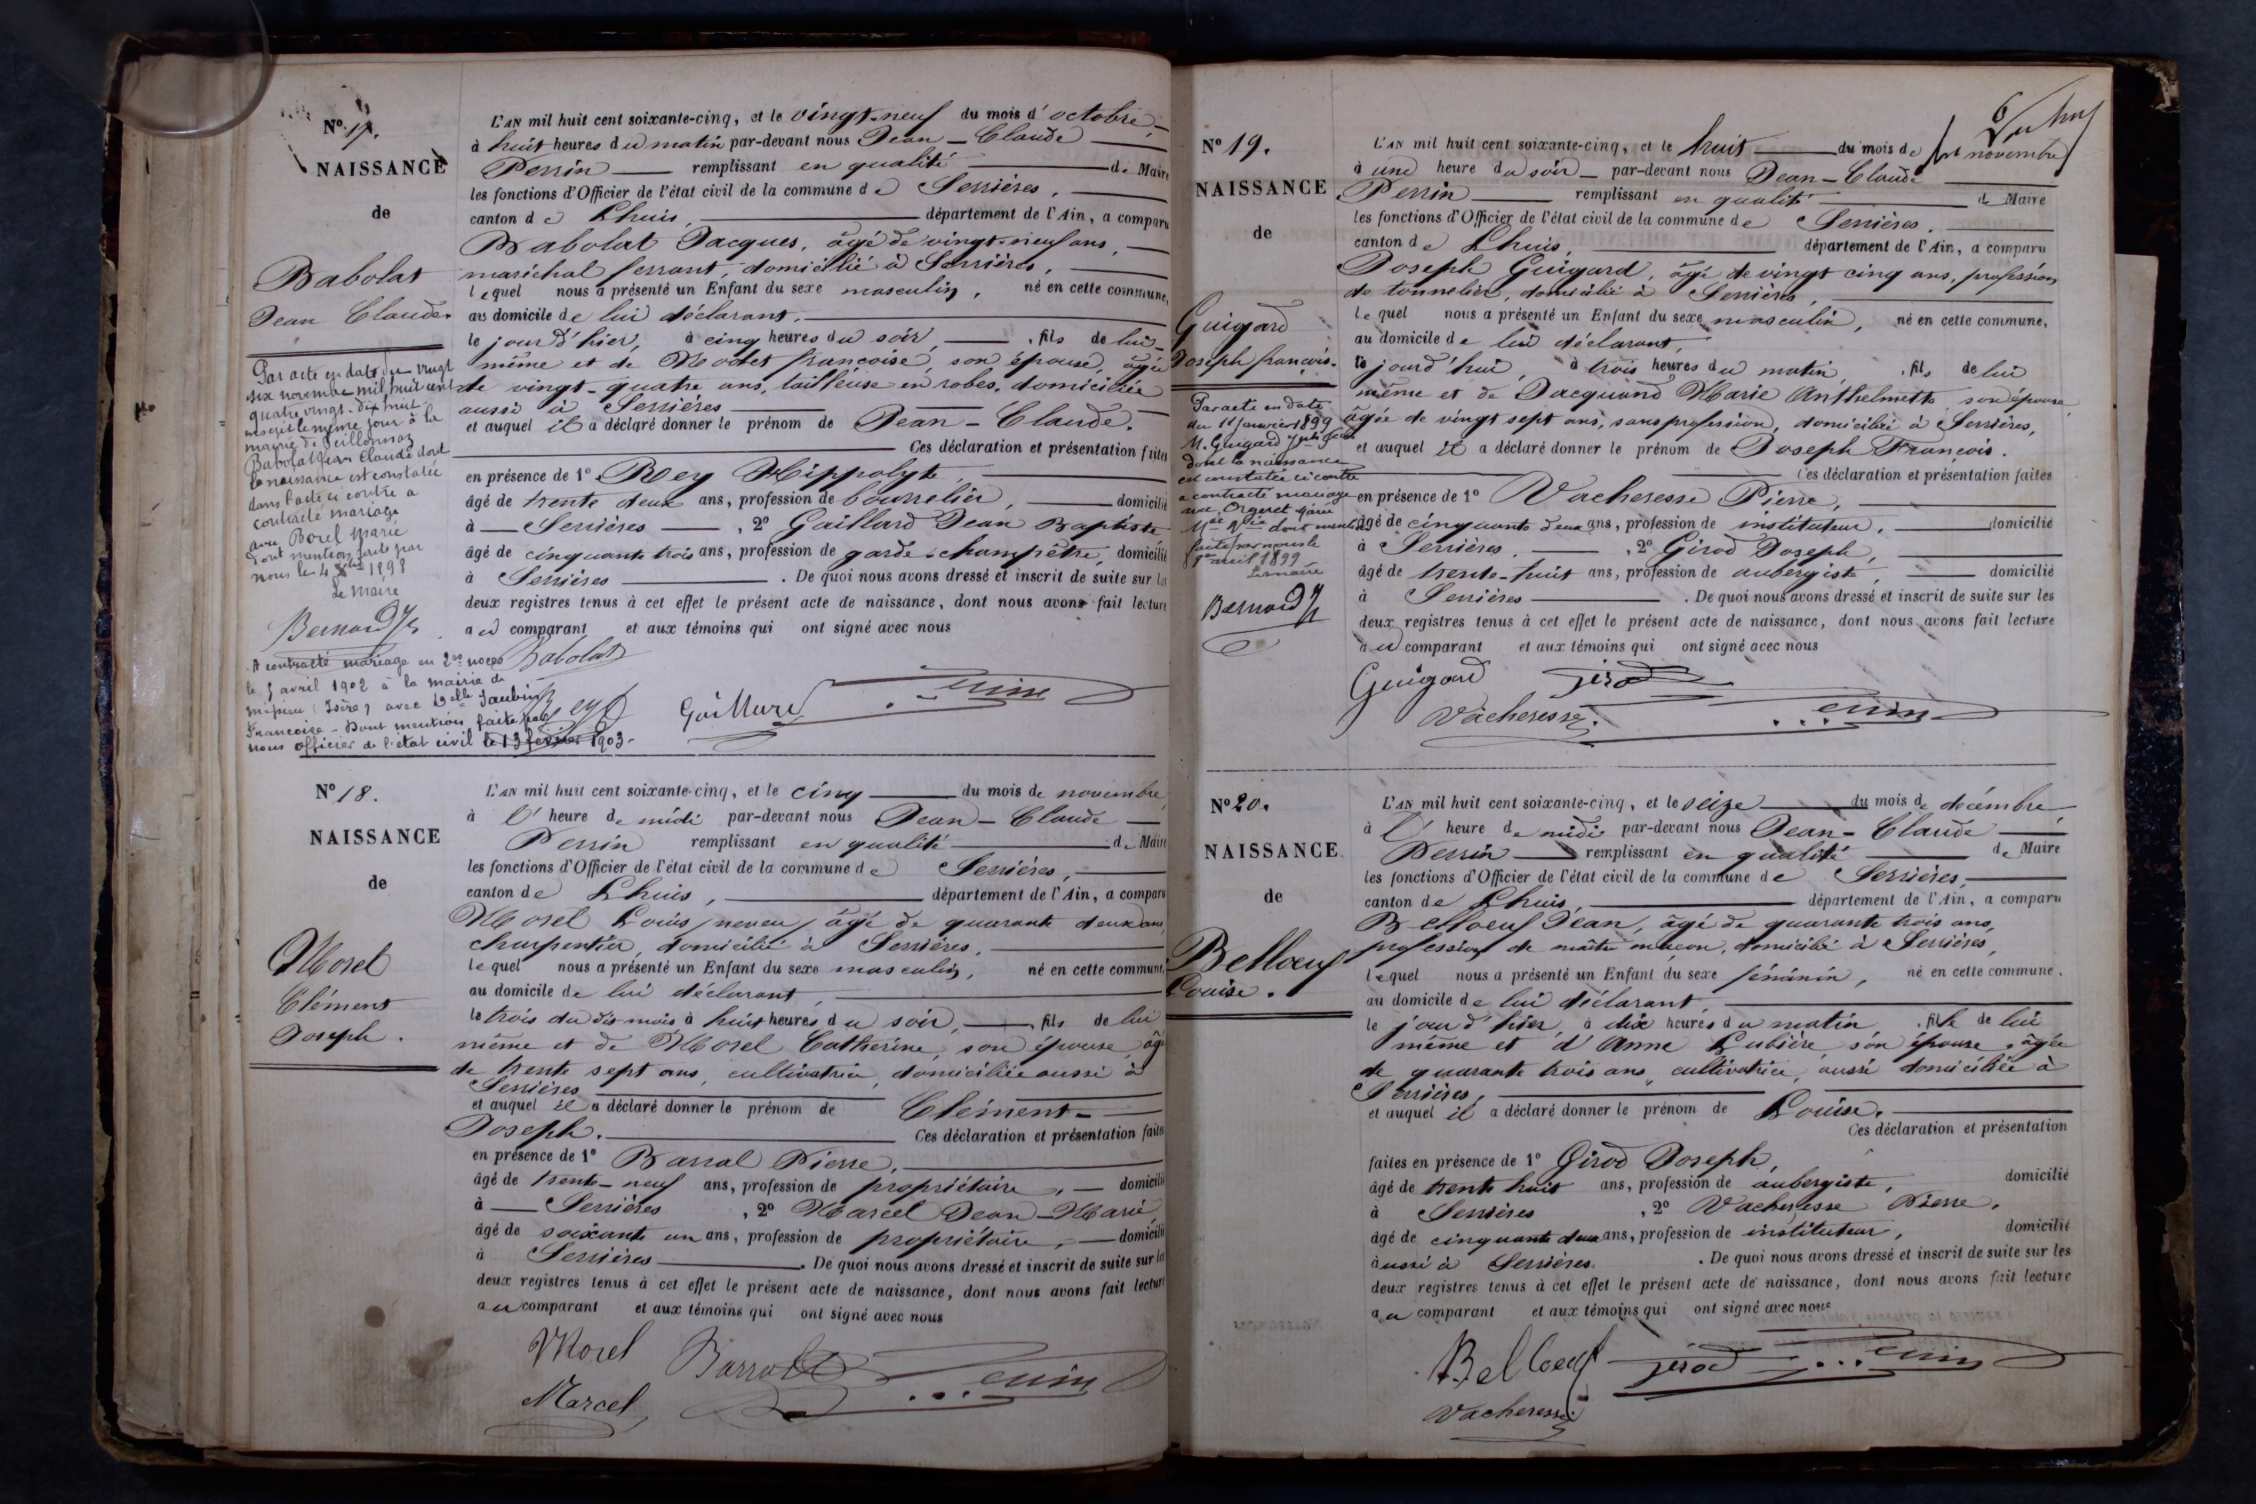 Nº 17.
NAISSANCE
de
Babolat
Jean Claude.
Par acte en date du vingt
six novembre mil huit cent
quatre vingt-dix huit
inscrit le même jour à la
mairie de Seillonnaz
Babolat Jean Claude dont
la naissance est constatée
dans l'acte ci contre a
contracté mariage
avec Borel Marie
dont mention faite par
nous le 4 Xbre 1898
Le Maire
Bernard
A contracté mariage en 2es noces
le 5 avril 1902 à la mairie de
(Isère) avec Delle Jaubin
Françoise - Dont mention faite par
nous officier de l'état civil le 13 février 1903.
L'AN mil huit cent soixante-cinq, et le vingt-neuf du mois d'octobre,
à huit heures du matin par-devant nous Jean-Claude
Perrin remplissant en qualité de Maire
les fonctions d'Officier de l'état civil de la commune de Serrières,
canton de Lhuis, département de l'Ain, a comparu
Babolat Jacques, âgé de vingt-neuf ans,
maréchal ferrant, domicilié à Serrières,
lequel nous a présenté un Enfant du sexe masculin, né en cette commune,
au domicile de lui déclarant,
le jour d'hier, à cinq heures du soir, fils de lui-
même et de Modet françoise, son épouse, âgée
de vingt-quatre ans, tailleuse en robes, domiciliée
aussi à Serrières
et auquel il a déclaré donner le prénom de Jean-Claude.
Ces déclaration et présentation faites
en présence de 1º Rey Hippolyte,
âgé de trente deux ans, profession de bourrelier, domicilié
à Serrières, 2º Gaillard Jean Baptiste
âgé de cinquante trois ans, profession de garde-champêtre, domicilié
à Serrières. De quoi nous avons dressé et inscrit de suite sur les
deux registres tenus à cet effet le présent acte de naissance, dont nous avons fait lecture
au comparant et aux témoins qui ont signé avec nous
Babolat
Rey
Gaillard
Perrin
Nº 18.
NAISSANCE
de
Morel
Clément
Joseph.
L'AN mil huit cent soixante-cinq, et le cinq du mois de novembre
à l'heure de midi par-devant nous Jean-Claude
Perrin remplissant en qualité de Maire
les fonctions d'Officier de l'état civil de la commune de Serrières,
canton de Lhuis, département de l'Ain, a comparu
Morel Louis (neveu) âgé de quarante deux ans,
charpentier, domicilié à Serrières,
lequel nous a présenté un Enfant du sexe masculin, né en cette commune,
au domicile de lui déclarant,
le trois du dis mois à huit heures du soir, fils de lui
même et de Morel Catherine, son épouse, âgée
de trente sept ans, cultivatrice, domiciliée aussi à
Serrières
et auquel il a déclaré donner le prénom de Clément-
Joseph. Ces déclaration et présentation faites
en présence de 1º Barral Pierre,
âgé de trente-neuf ans, profession de propriétaire, domicilié
à Serrières, 2º Marcel Jean-Marie,
âgé de soixante un ans, profession de propriétaire, domicilié
à Serrières. De quoi nous avons dressé et inscrit de suite sur les
deux registres tenus à cet effet le présent acte de naissance, dont nous avons fait lecture
au comparant et aux témoins qui ont signé avec nous
Morel Barral Perrin
Marcel
6
Nº 19.
NAISSANCE
de
Guigard
Joseph françois.
Par acte en date
du 11 janvier 1899
M. Guigard Jph fçois
dont la naissance
est constatée ci contre
a contracté mariage
avec Orgeret
dont mention
faite par nous le
1er avril 1899
Le maire
Bernard
L'AN mil huit cent soixante-cinq, et le huit du mois de novembre
à une heure du soir par-devant nous Jean-Claude
Perrin remplissant en qualité de Maire
les fonctions d'Officier de l'état civil de la commune de Serrières,
canton de Lhuis, département de l'Ain, a comparu
Joseph Guigard, âgé de vingt cinq ans, profession
de tonnelier, domicilié à Serrières,
lequel nous a présenté un Enfant du sexe masculin, né en cette commune,
au domicile de lui déclarant,
le jourd'hui, à trois heures du matin, fils de lui
même et de Jacquand Marie Anthelmette son épouse
âgée de vingt sept ans, sans profession, domiciliée à Serrières,
et auquel il a déclaré donner le prénom de Joseph François.
Ces déclaration et présentation faites
en présence de 1º Vacheresse Pierre,
âgé de cinquante deux ans, profession de instituteur, domicilié
à Serrières, 2º Girod Joseph,
âgé de trente-huit ans, profession de aubergiste, domicilié
à Serrières. De quoi nous avons dressé et inscrit de suite sur les
deux registres tenus à cet effet le présent acte de naissance, dont nous avons fait lecture
au comparant et aux témoins qui ont signé avec nous
Guigard girod
Vacheresse. Perrin
Nº 20.
NAISSANCE
de
Bellœuf
Louise.
L'AN mil huit cent soixante-cinq, et le seize du mois de décembre
à l'heure de midi par-devant nous Jean-Claude
Perrin remplissant en qualité de Maire
les fonctions d'Officier de l'état civil de la commune de Serrières,
canton de Lhuis, département de l'Ain, a comparu
Bellœuf Jean, âgé de quarante trois ans,
profession de maître maçon, domicilié à Serrières,
lequel nous a présenté un Enfant du sexe féminin, né en cette commune.
au domicile de lui déclarant
le jour d'hier, à dix heures du matin, fille de lui
même et d'Anne Lubière, son épouse, âgée
de quarante trois ans, cultivatrice, aussi domiciliée à
Serrières,
et auquel il a déclaré donner le prénom de Louise.
Ces déclaration et présentation
faites en présence de 1º Girod Joseph,
âgé de trente huit ans, profession de aubergiste, domicilié
à Serrières, 2º Vacheresse Pierre,
âgé de cinquante deux ans, profession de instituteur, domicilié
aussi à Serrières. De quoi nous avons dressé et inscrit de suite sur les
deux registres tenus à cet effet le présent acte de naissance, dont nous avons fait lecture
au comparant et aux témoins qui ont signé avec nous
Bellœuf girod Perrin
Vacheresse